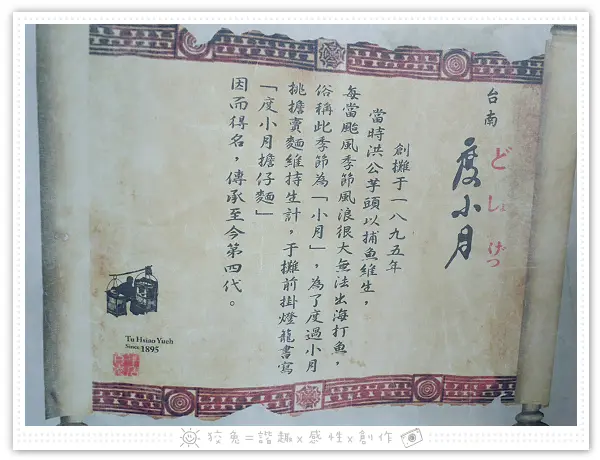 台南
度小月
どしげつ
創攤于一八九五年
當時洪公芋頭以捕魚維生，
每當颱風季節風浪很大無法出海打魚，
俗稱此季節為「小月」，為了度過小月
挑擔賣麵維持生計，于攤前掛燈籠書寫
「度小月擔仔麵」
因而得名，傳承至今第四代。
Tu Hsiao Yueh
Since 1895
狡兔=諧趣x感性x創作